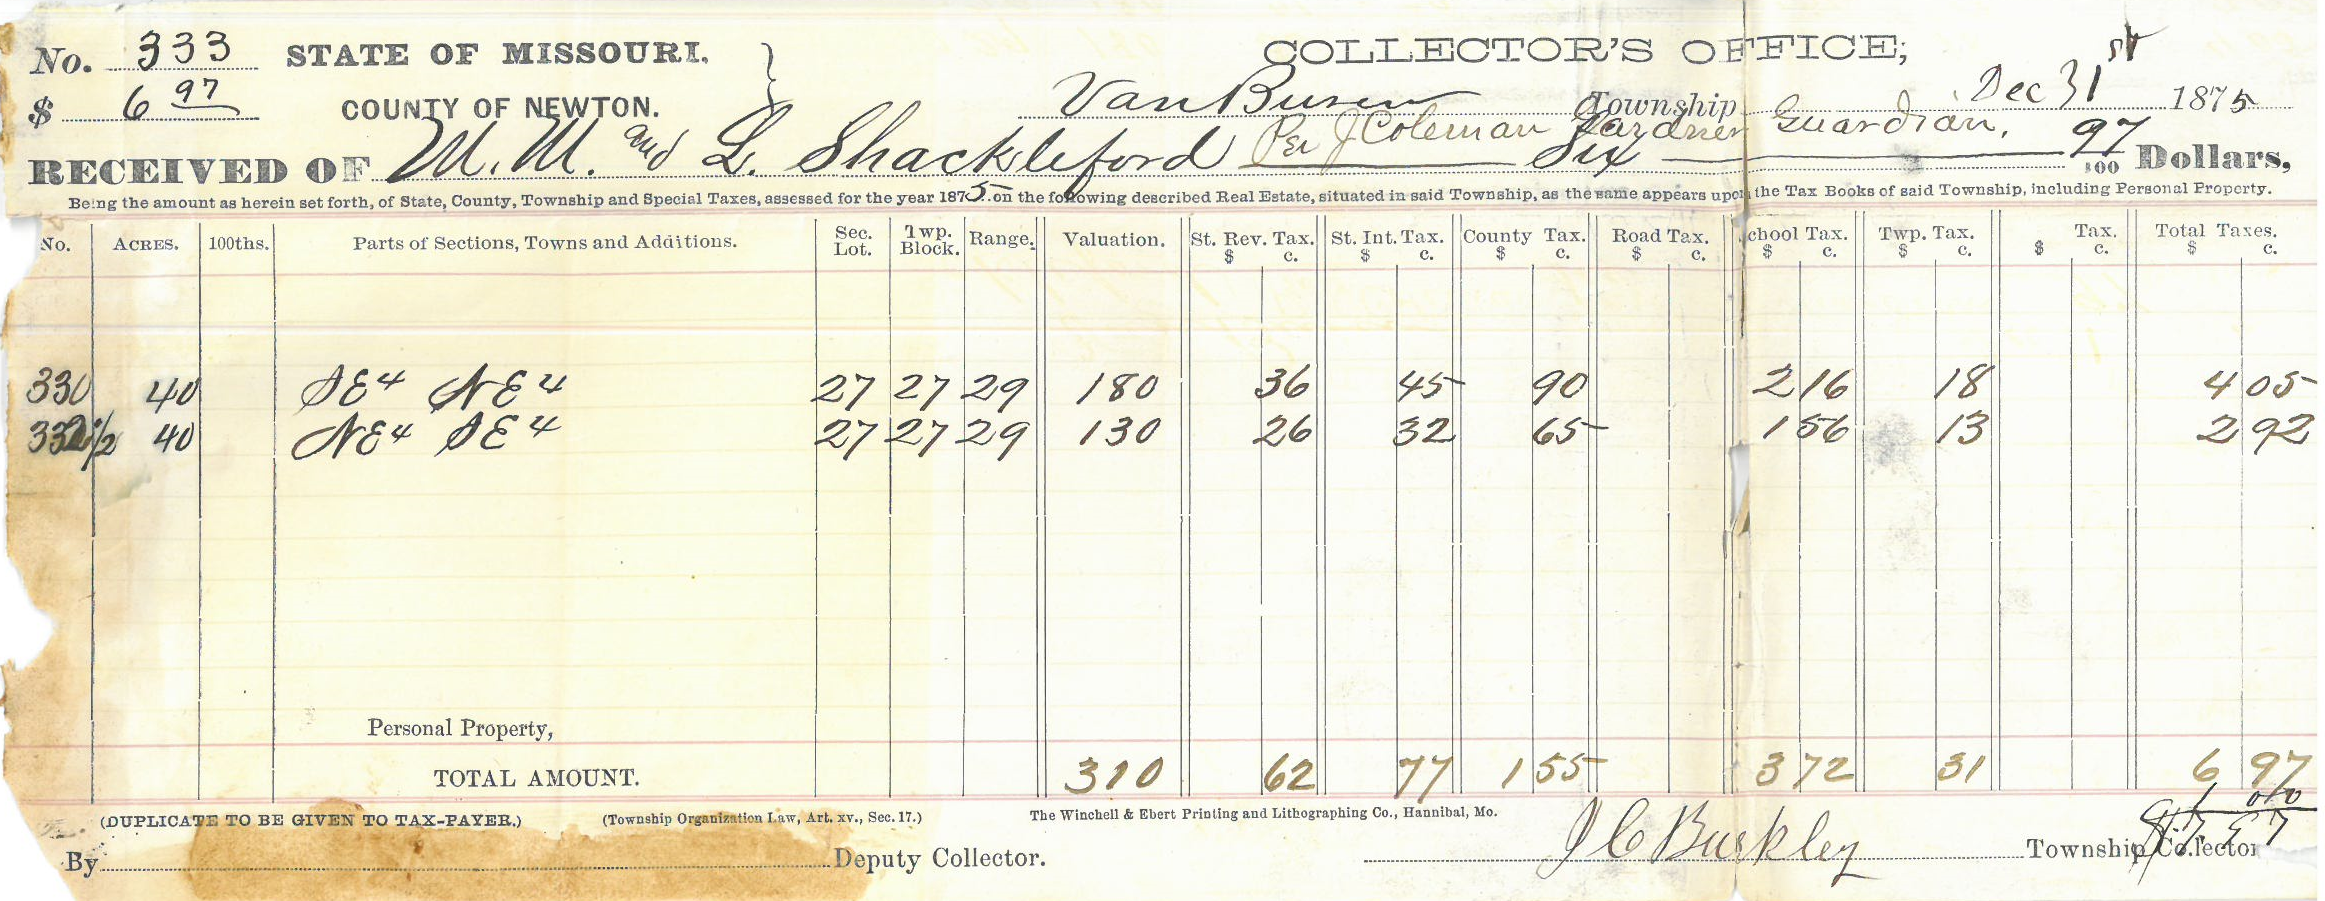 No. 333 STATE OF MISSOURI. COLLECTOR'S OFFICE;
$ 6 97 COUNTY OF NEWTON. Van Buren Township Dec 31st 1875
Per J Coleman Gardner Guardian.
RECEIVED OF M. M. and L. Shackleford Six 97/100 Dollars,
Being the amount as herein set forth, of State, County, Township and Special Taxes, assessed for the year 1875 on the following described Real Estate, situated in said Township, as the same appears upon the Tax Books of said Township, including Personal Property.
No. ACRES. 100ths. Parts of Sections, Towns and Additions. Sec. Lot. Twp. Block. Range. Valuation. St. Rev. Tax. $ c. St. Int. Tax. $ c. County Tax. $ c. Road Tax. $ c. chool Tax. $ c. Twp. Tax. $ c. Tax. $ c. Total Taxes. $ c.
330 40 SE4 NE4 27 27 29 180 36 45 90 2 16 18 4 05
40 NE4 SE4 27 27 29 130 26 32 65 1 56 13 2 92
Personal Property,
TOTAL AMOUNT. 310 62 77 1 55 3 72 31 6 97
(DUPLICATE TO BE GIVEN TO TAX-PAYER.) (Township Organization Law, Art. xv., Sec. 17.) The Winchell & Ebert Printing and Lithographing Co., Hannibal, Mo.
By Deputy Collector. J C Buckley Township Collector